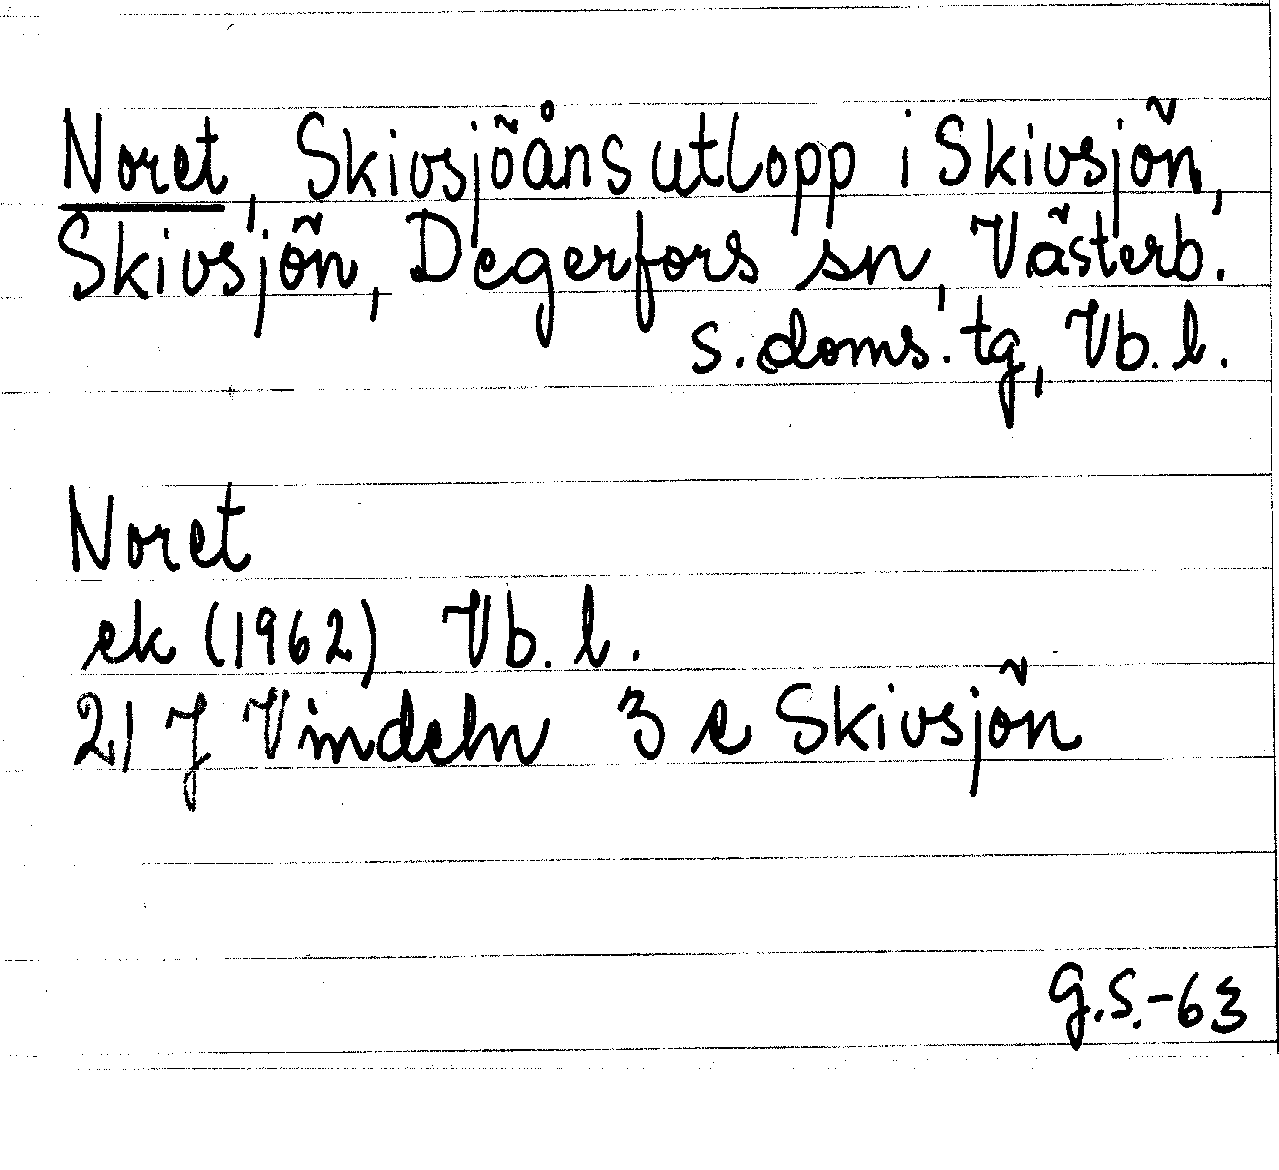 Noret, Skivsjöåns utlopp i Skivsjön,
Skivsjön, Degerfors sn, Västerb.
s. doms. tg, Vb. l.
Noret
ek (1962) Vb. l.
21 J Vindeln 3 e Skivsjön
G.S.-63